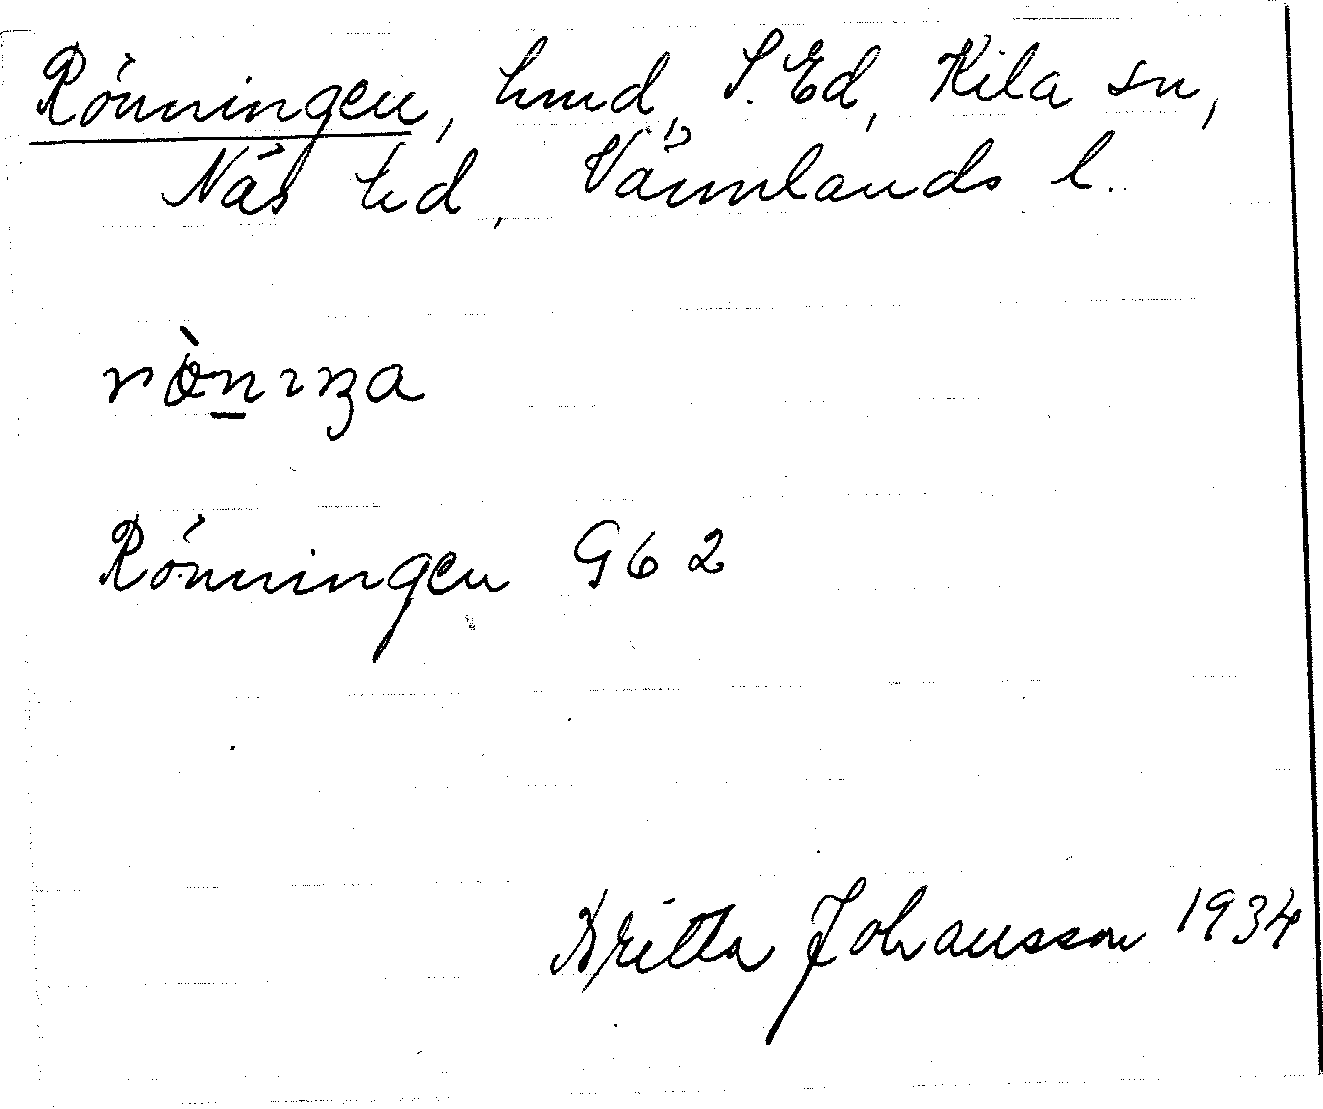 Rönningen, hmd, S. Ed, Kila sn,
Näs hd, Värmlands l.
Rönningen G 6 2
Britta Johansson 1934